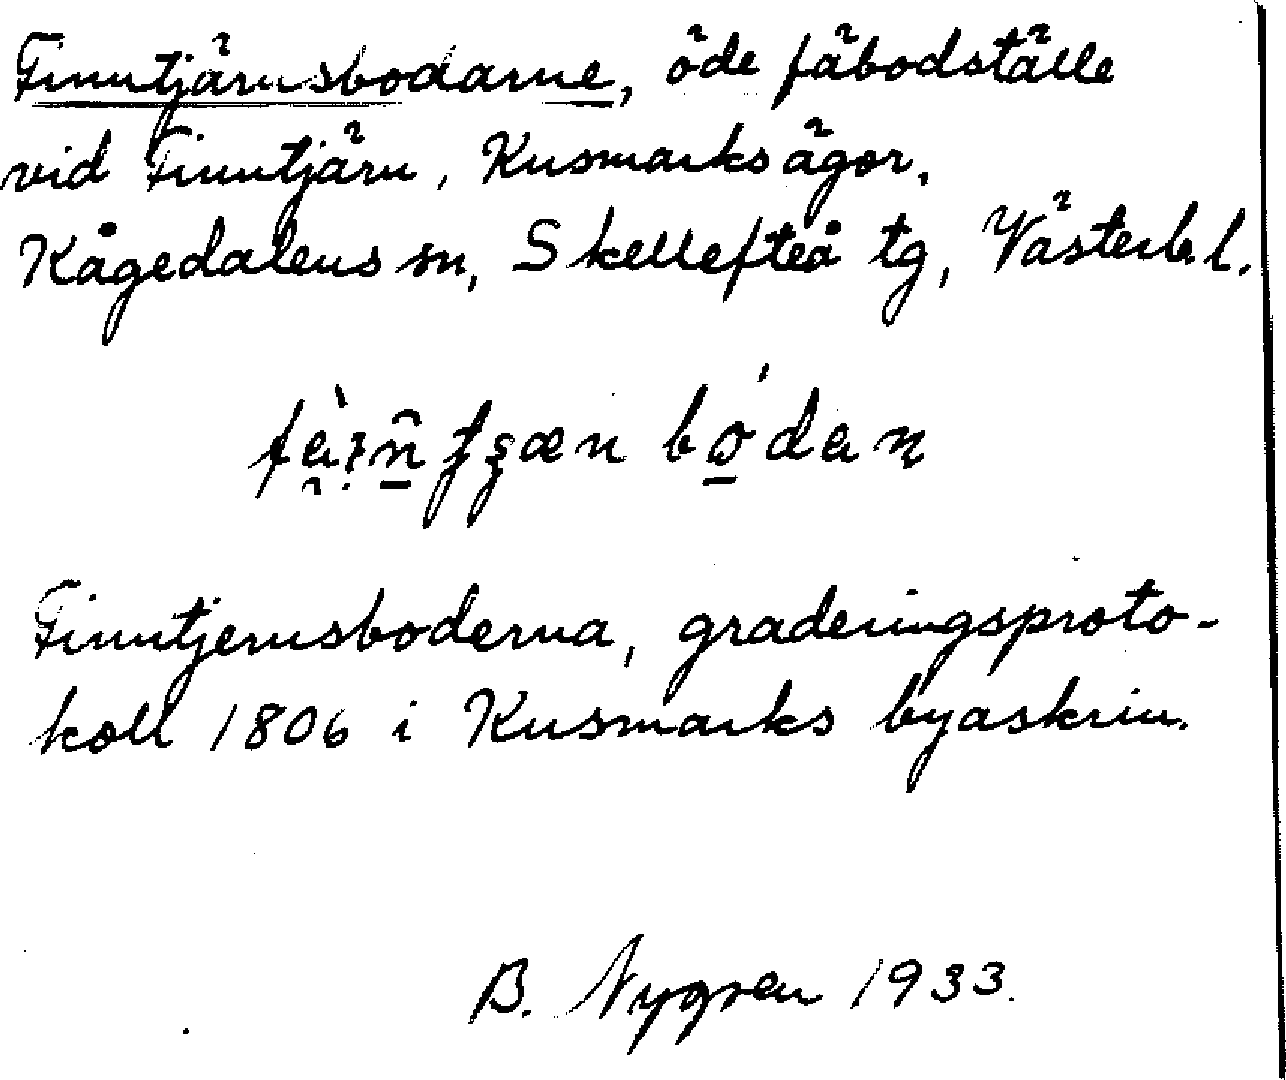 Finntjärnsbodarne, öde fäbodställe
vid Finntjärn, Kusmarks ägor,
Kågedalens sn, Skellefteå tg, Västerb. l.
Finntjernsboderna, graderingsproto-
koll 1806 i Kusmarks byaskrin.
B. Nygren 1933.